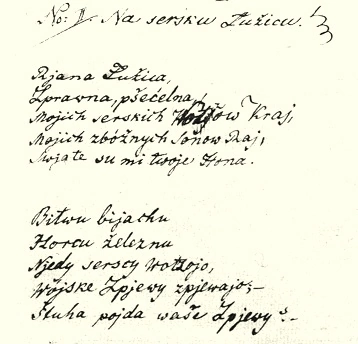 No: II. Na sersku Łužicu.
Rjana Łužica,
Zprawna, pšećelna,
Mojich serskich Wótzow Kraj,
Mojich zbóžnych Sonow Raj,
Swjate su mi twoje Hona.
Bitwu bijachu
Horcu železnu
Njedy serscy Wotzojo,
Wójske Zpjewy zpjewajo,–
Štuha pojda waše Zpjewy?–